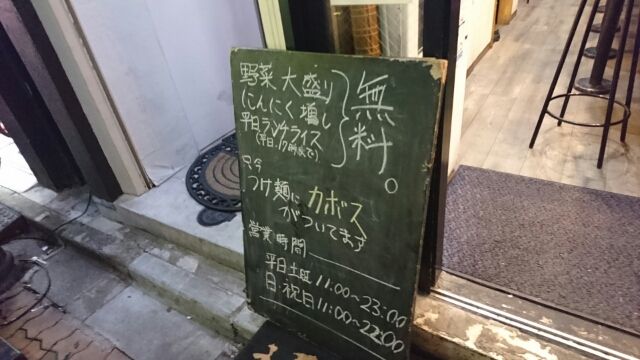 野菜 大盛り
にんにく増し
平日ランチライス
(平日17時まで)
無料。
只今
つけ麺に カボス
がついてます
営業時間
平日土曜 11:00~23:00
日・祝日 11:00~22:00